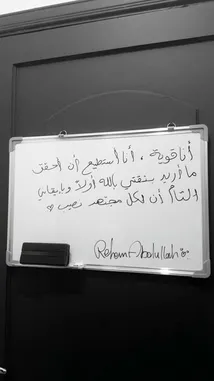 أنا قوية ، أنا أستطيع أن أحقق
ما أريد بثقتي بالله أولاً وبإيماني
التام أن لكل مجتهد نصيب ♡
Reham Abdullah